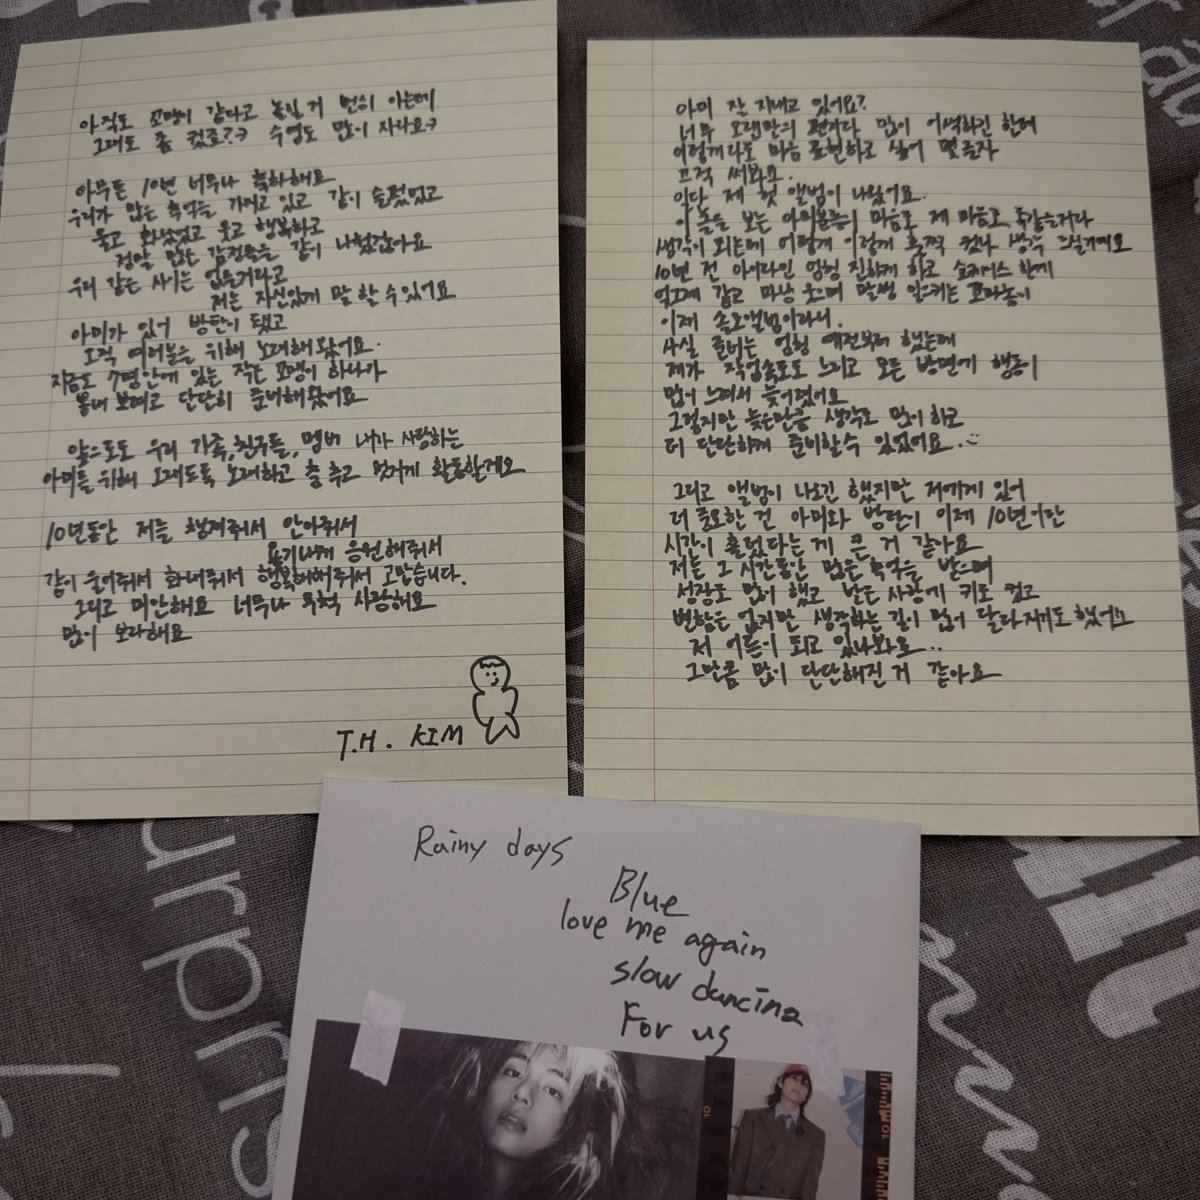 아미 잘 지내고 있어요?
너무 오랜만의 편지라 많이 어색하긴 한데
이렇게라도 마음 표현하고 싶어 몇글자
끄적 써봐요.
일단 제 첫 앨범이 나왔어요.
이 놈을 보는 아미분들의 마음도 제 마음도 똑같을거라
생각이 되는데 어떻게 이렇게 훌쩍 컸나 생각 드실거예요
10년 전 아이라인 엄청 진하게 하고 쇼케이스 한게
엊그제 같고 마냥 웃으며 말썽 일으키는 꼬마놈이
이제 솔로앨범이라니.
사실 준비는 엄청 예전부터 했는데
제가 작업속도도 느리고 모든 방면에 행동이
많이 느려서 늦어졌어요
그렇지만 늦은만큼 생각도 많이 하고
더 단단하게 준비할수 있었어요.
그리고 앨범이 나오긴 했지만 저에게 있어
더 중요한 건 아미와 방탄이 이제 10년이란
시간이 흘렀다는 게 큰 거 같아요
저는 그 시간동안 많은 추억을 받으며
성장도 많이 했고 받은 사랑에 키도 컸고
변함은 없지만 생각하는 길이 많이 달라지기도 했어요
저 어른이 되고 있나봐요..
그만큼 많이 단단해진 거 같아요
아직도 꼬맹이 같다고 놀릴 거 뻔히 아는데
그래도 좀 컸죠? 수염도 많이 자라요
아무튼 10년 너무나 축하해요
우리가 많은 추억을 가지고 있고 같이 슬펐었고
울고 화났었고 웃고 행복하고
정말 많은 감정들을 같이 나눴잖아요
우리 같은 사이는 없을거라고
저는 자신있게 말 할 수 있어요
아미가 있어 방탄이 됐고
오직 여러분을 위해 노래해왔어요.
지금도 7명안에 있는 작은 꼬맹이 하나가
뽐내 보려고 단단히 준비해왔어요
앞으로도 우리 가족, 친구들, 멤버 내가 사랑하는
아미를 위해 오래도록 노래하고 춤 추고 멋지게 활동할게요
10년동안 저를 챙겨줘서 안아줘서
용기나게 응원해줘서
같이 울어줘서 화내줘서 행복해해줘서 고맙습니다.
그리고 미안해요 너무나 무척 사랑해요
많이 보라해요
T.H. KIM
Rainy days
Blue
love me again
slow dancing
For us
10
10